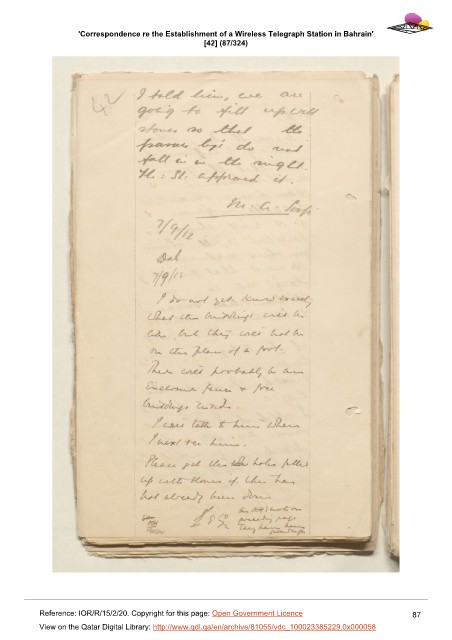 'Correspondence re the Establishment of a Wireless Telegraph Station in Bahrain'
[42] (87/324)
42
I told him, we are
going to fill up with
stones so that the
passers by's do not
fall in in the night.
approved it.
7/9/12
7/9/12
I do not yet know exactly
what the buildings will be
like, but they will not be
on the plan of a fort.
There will probably be an
enclosure fence & five
buildings inside.
I will talk to him when
I next see him.
Please get the holes filled
up with stones if this has
not already been done
Reference: IOR/R/15/2/20. Copyright for this page: Open Government Licence
View on the Qatar Digital Library: http://www.qdl.qa/en/archive/81055/vdc_100023385229.0x000058
87